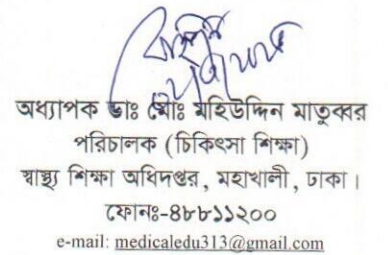 অধ্যাপক ডাঃ মোঃ মহিউদ্দিন মাতুব্বর
পরিচালক (চিকিৎসা শিক্ষা)
স্বাস্থ্য শিক্ষা অধিদপ্তর, মহাখালী, ঢাকা।
ফোনঃ-৪৮৮১১২০০
e-mail: medicaledu313@gmail.com